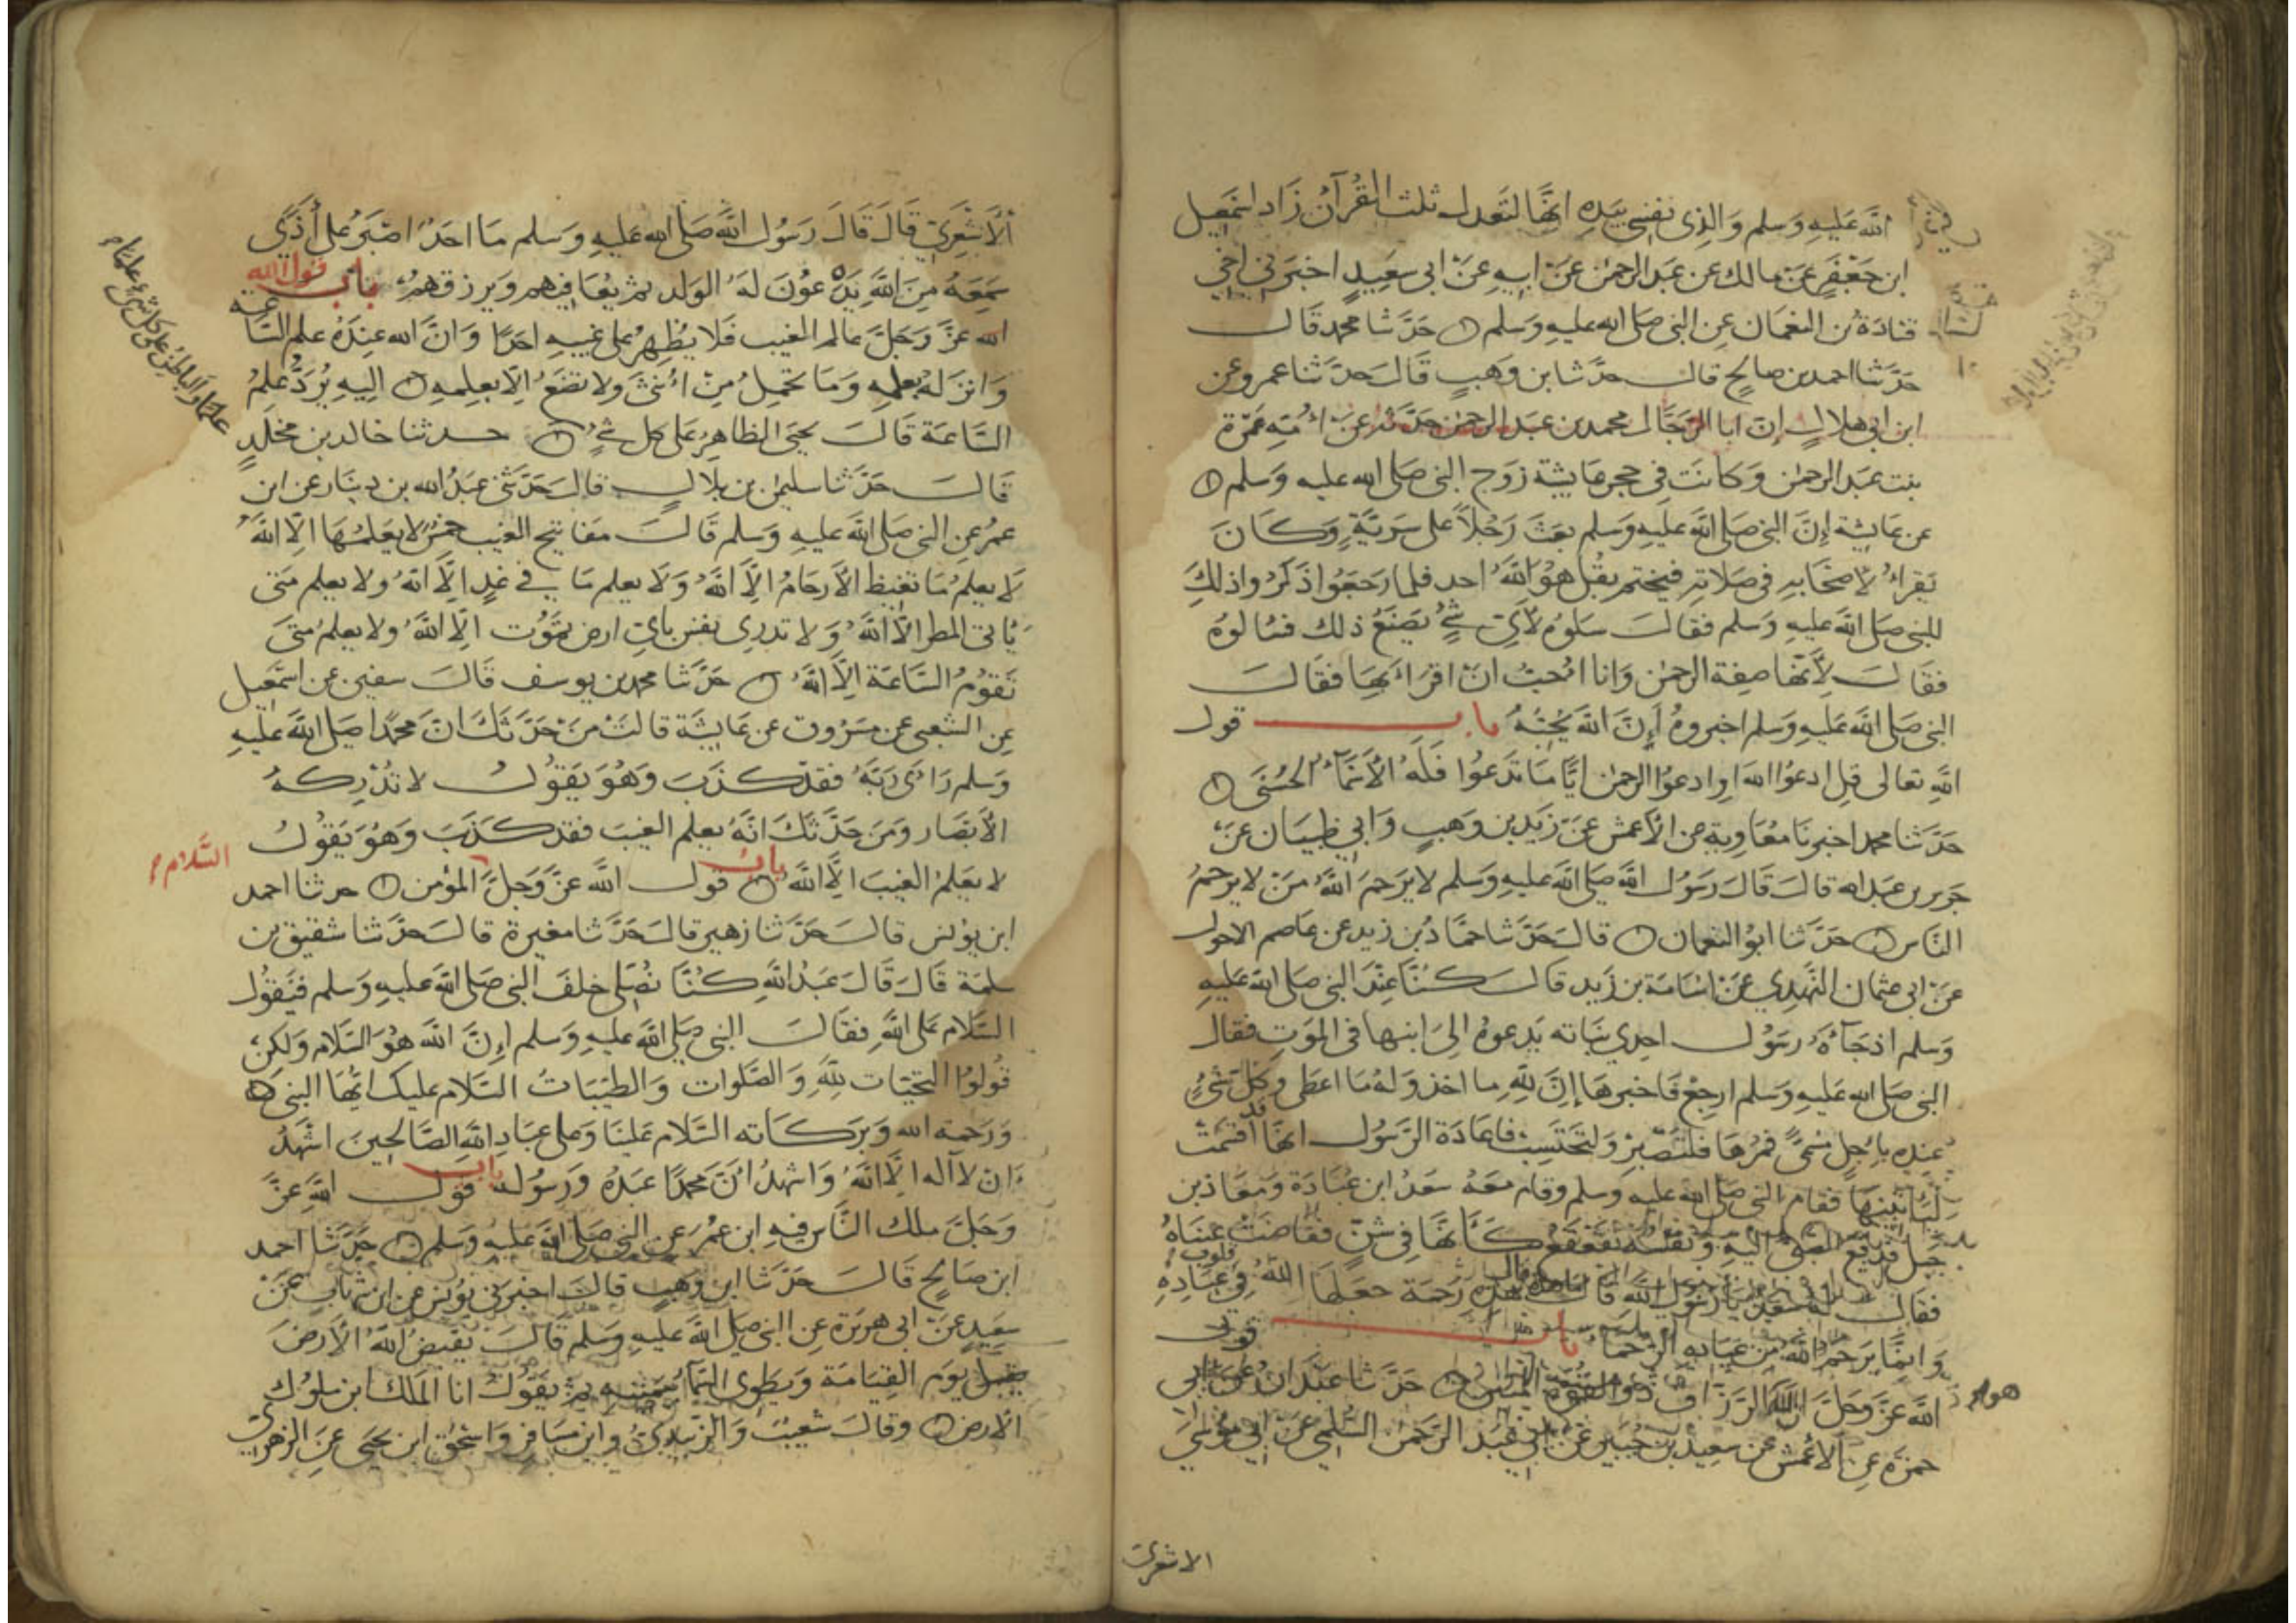 الله عَليهِ وَسلم وَالذِى نفسِى بيَدِهِ انهَّا لتَعدل ثلث القُرآن زَاد اسمَعِيل
ابن جَعْفَرٍ عَنْ مالك عن عَبد الرحمن عَنْ ابيهِ عَنْ ابى سَعِيدٍ اخبَرنى اخِى
قتادَةُ بن النعمَان عن النبى صَلى الله عليهِ وَسَلم حَدَّثنا محمد قَال
حَدَّثنا احمد بن صَالحٍ قال حدَّثنا بن وَهبٍ قَالَ حَدثنا عمرو عن
ابن ابى هلالٍ إنَ ابا الرّجَال محمد بن عبَد الرحمن حَدَّثهُ عَنْ اُمّهِ عَمْرَة
بنت عبَد الرحمن وَكانَت فى حجر عَايشة زَوج النبى صَلى الله عليه وَسَلم
عن عَايشة إنَ النبى صَلى الله عليهِ وَسلم بعَثَ رَجُلاً على سَريَّةٍ وَكَانَ
يَقراُ لاَصحَابهِ فى صَلاَتهِ فيَختم بقُل هوُ اللهُ احد فلما رَجَعَوُا ذكَرُوا ذلِكَ
للنبى صَلى الله عليهِ وَسلم فقالَ سَلوُه لأىّ شىٍ يصَنعُ ذلك فسَالوهُ
فقَالَ لاَنها صِفة الرحمن وَانا اُحبُ انْ اقراَ بهَا فقَالَ
النبى صَلى الله عَليهِ وَسلم اخبروهُ إنَ الله يحُبّهُ باب قول
اللهِ تعالى قل ادعوُا الله اوِ ادعوُا الرحمن ايًّا مَا تَدعوُا فَلَهُ الاَسمَآُ الحُسنَى
حَدَّثنا محمد اخبرنا مُعَاوية عن الاَعمش عَنْ زيَد بن وَهبٍ وَابى ظبيَان عَنْ
جَرير بن عَبد الله قالَ قَالَ رَسُول اللهِ صَلى الله عليهِ وَسلم لا يَرحَمَ اللهُ مَنْ لا يَرْحَمُ
النَاس حَدَّثنا ابوُ النعمان قالَ حَدَّثنا حمَّادُ بن زيد عن عَاصم الاحول
عَنْ ابى عثمان النَّهدِي عَنْ اسَامَة بن زَيد قالَ كنَّا عنِدَ النبى صَلى الله عَليهِ
وَسلم اذ جَآءَهُ رسَوُل احِدي بنَاته يَدعوهُ الِىَ ابنها فى الموَتِ فقال
النبى صَلى الله عَليهِ وَسلم ارجِعْ فَاخبرهَا إنَ للهِ ما اخذ وَلهُ مَا اعطى وكلّ شَىءٍ
عنده باجِلٍ مسمىَّ فمُرهَا فلتَصْبرْ وَلتحَتسِبْ فاعَادَة الرَسُول انها قد اقسَمت
لَتاتينهَا فقام النبى صَلى الله عليهِ وسلم وقام معَهُ سَعدُ ابن عُبَادَة وَمعَاذ بن
جَبل فدفعَ الصَّبى اليهِ وَنفسُه تقَعقَعُ كَأنَّهَا فى شَنّ ففَاضَتْ عينَاهُ
فقال لهُ سَعدٌ يا رَسُول الله قال هذِهِ رَحمَة جعَلهَا اللهُ فى قلوب عبَادِهِ
وَانمَّا يرَحمُ اللهُ منَ عبَادِه الرُحماءَ باب قول
اللهِ عَزَّ وَجَلَّ انَّ اللهَ هو الرَزَّاق ذُو القُوَةِ المتَين حَدَّثنا عَبْدَان عَنْ ابى
حمزَة عَنِ الاَعْمَش عن سعِيد بن جُبَير عَنْ ابى عَبْد الرَحمن السُّلمِى عَنْ ابى مُوسَى
الاشعرىّ
الاَشْعَرىّ قَالَ قَالَ رَسُول اللهِ صَلى الله عَليهِ وَسلم مَا احَدٌ اصْبَرُ على أذَىً
سَمَعَهُ مِنَ اللهِ يَدَّعوُنَ لهُ الوَلد ثم يُعَافيهم وَيرزقهمُ باب قول الله
الله عَزَّ وَجَلَّ عالم الغيب فَلا يظهِرُ على غيبهِ احَدًا وَانَّ الله عِندَهُ علم السَّاعة
وَانزَلهُ بعلمِهِ وَمَا تحَمِلُ مِنْ اُنثَى وَلا تضَعُ الِاّ بعِلمِهِ الِيهِ يُرَدُّ عِلمُ
السَّاعَة قَالَ يحيَى الظاهِرُ على كل شىءٍ حدثنا خالد بن مخلَدٍ
علمًا وَالباطنُ على كل شىءٍ علمًا
قَالَ حَدَّثنا سليمن بن بلالٍ قالَ حَدَّثنى عَبدُ الله بن دينَار عن ابن
عمُرَ عنِ النبى صَلى الله عليهِ وَسلم قَالَ مفَاتيح الغَيب خمسٌ لا يعَلمُهَا الِاّ اللهُ
لاَ يعلَمُ مَا تغَيض الاَرحَامُ الِاّ اللهُ وَلاَ يعلم مَا فى غدٍ الِاّ اللهُ ولا يعلم متَى
يَاتى المطر الِاّ اللهُ وَلا تدرى نفس بأىّ ارض تمَوُت الِاّ اللهُ ولا يعلمُ متىَ
تَقوُمُ السَّاعَة الِاّ اللهُ حَدَّثنا محمد بن يوسف قَالَ سفين عن اسمَعيل
عنِ الشعبى عن مَسَرُوق عن عَايشَة قالتَْ مَنْ حَدَّثكَ انَ محمَدًا صَلى الله عَليهِ
وَسلم رَاىَ ربَّهُ فقَد كذَبَ وَهُوَ يقَوُلُ لا تُدْركهُ
الاَبصَار وَمَنَ حَدَّثكَ انَّهُ يعلم الغيبَ فقد كذَبَ وَهُوَ يقَوُلُ
لا يعَلمُ الغيبَ الِاّ اللهُ باب قول الله عَزَّ وَجَلَّ السَّلام المؤمن حدثنا احمد
ابن يوُنس قالَ حَدَّثنا زهير قالَ حَدَّثنا مغيرة قالَ حَدَّثنا شقيق بن
سلمَة قَالَ قَالَ عَبدُ اللهِ كنَّا نصُلى خلفَ النبى صَلى الله عليهِ وَسلم فنَقوُل
السَّلام عَلى اللهِ فقَالَ النبى صَلى الله عليهِ وَسلم إنَّ الله هوُ السَّلام وَلكنْ
قوُلوُا التحيَّات للهِ وَالصَّلوات وَالطيّبَاتُ السَّلام عليك ايُّها النبىُ
وَرَحمة الله وَبَركَاته السَّلام عَلينَا وَعلى عبَادِ اللهِ الصَّالحِينَ اشهَدُ
ان لا اله الِاّ اللهُ وَاشهدُ انَّ محَمدًا عَبدُهُ وَرسُولهُ باب قول اللهِ عَزَّ
وَجَلَّ ملك النَّاس فيهِ ابن عمُرَ عَنِ النبى صَلى الله عليهِ وَسلم حَدَّثنا احمد
ابن صَالحٍ قَالَ حَدَّثنا ابن وَهبٍ قالَ اخبرَنى يوُنس عن ابن شهَابٍ عَنْ
سَعيدٍ عَنْ ابى هرَيرَة عَنِ النبى صَلى الله عليهِ وسَلم قَالَ يقبَضُ اللهُ الاَرضَ
يوَم القِيَامَة وَيَطوى السَّمآءَ بيمَينهِ ثم يقَوُلُ انا الملَك اين ملوُك
الاَرض وقالَ شعيَبٌ وَالزُّبيدِىُّ وابن مسَافر وَاسحٰق ابن يحيَى عَنِ الزهرىّ